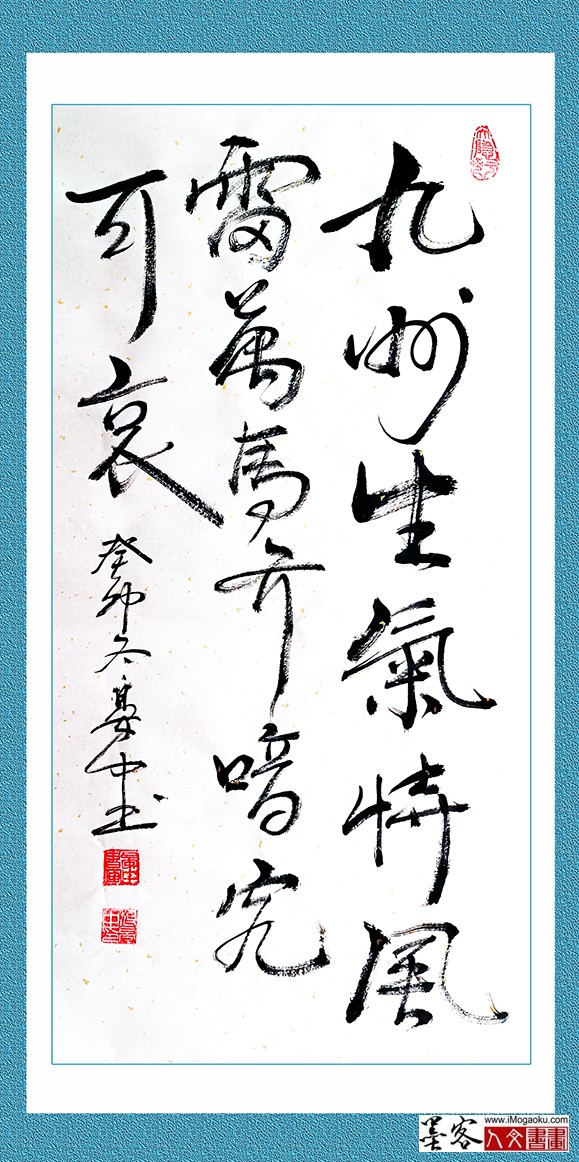 九州生氣恃風
雷萬馬齐喑究
可哀
癸卯冬 中书
墨客
www.iMogaoku.com
人文書畫